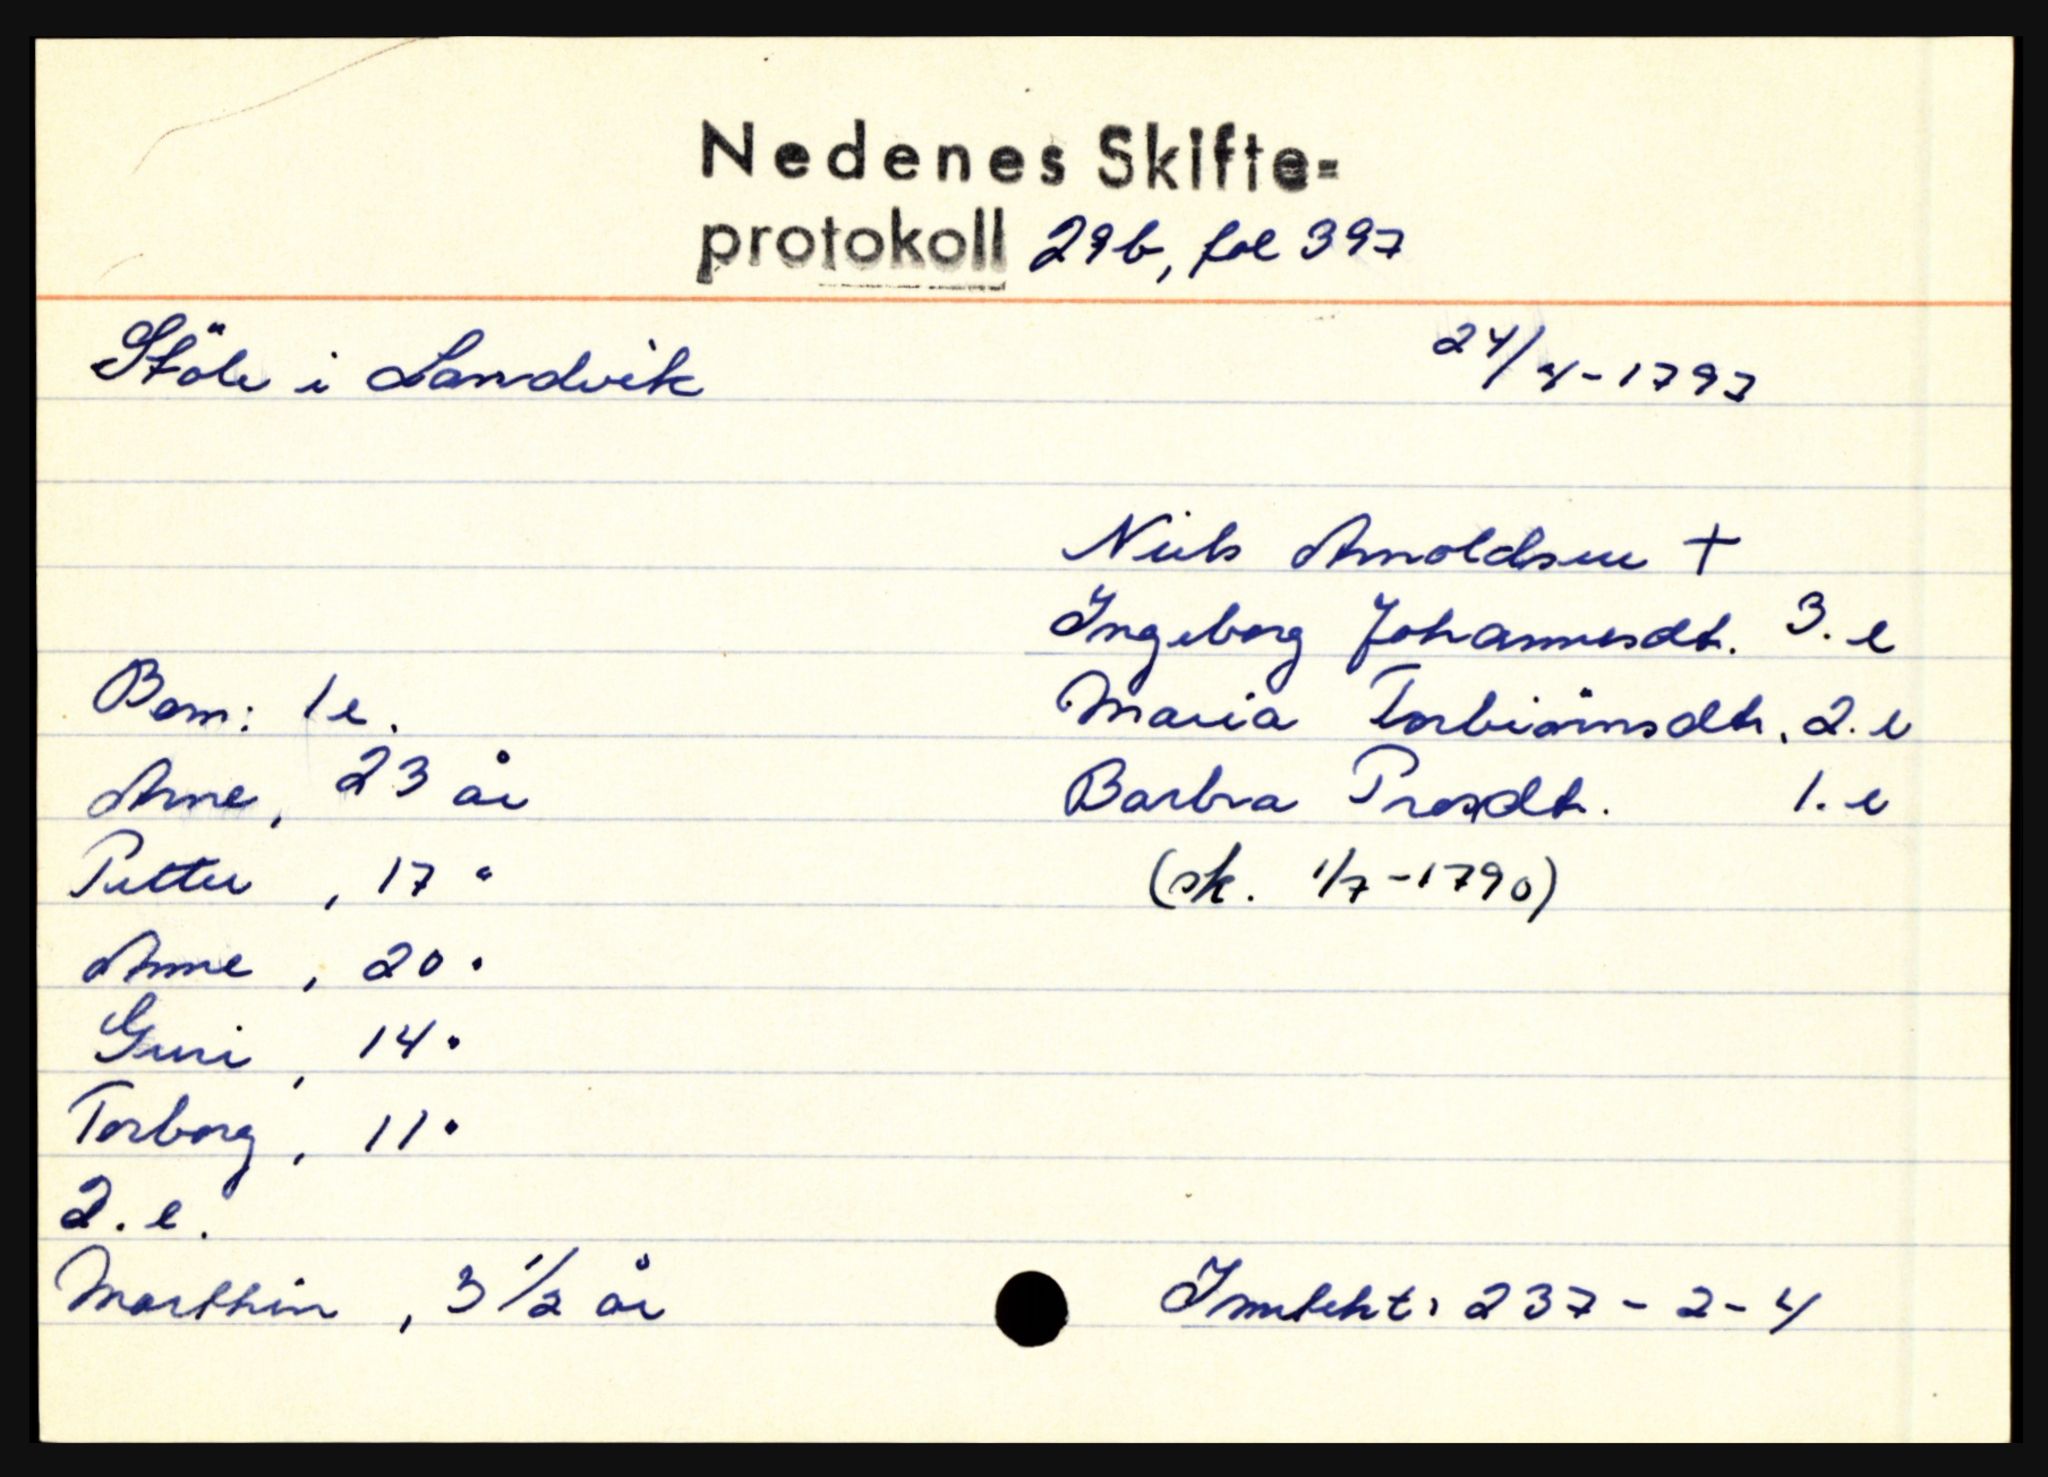 Nedenes Skifte=
protokoll 29b, fol 397
Støle i Landvik 24/4-1797
Niels Arnoldsen +
Ingeborg Johannesdt. 3. e
Maria Torbiörnsdtr. 2. e
Barbra Presdt. 1. e
(sk. 1/7-1790)
Barn: 1 e.
Arne, 23 år
Petter, 17 "
Anne, 20 "
Guri, 14 "
Torborg, 11 "
2. e.
Marthin, 3 1/2 år
Inntekt: 237-2-4